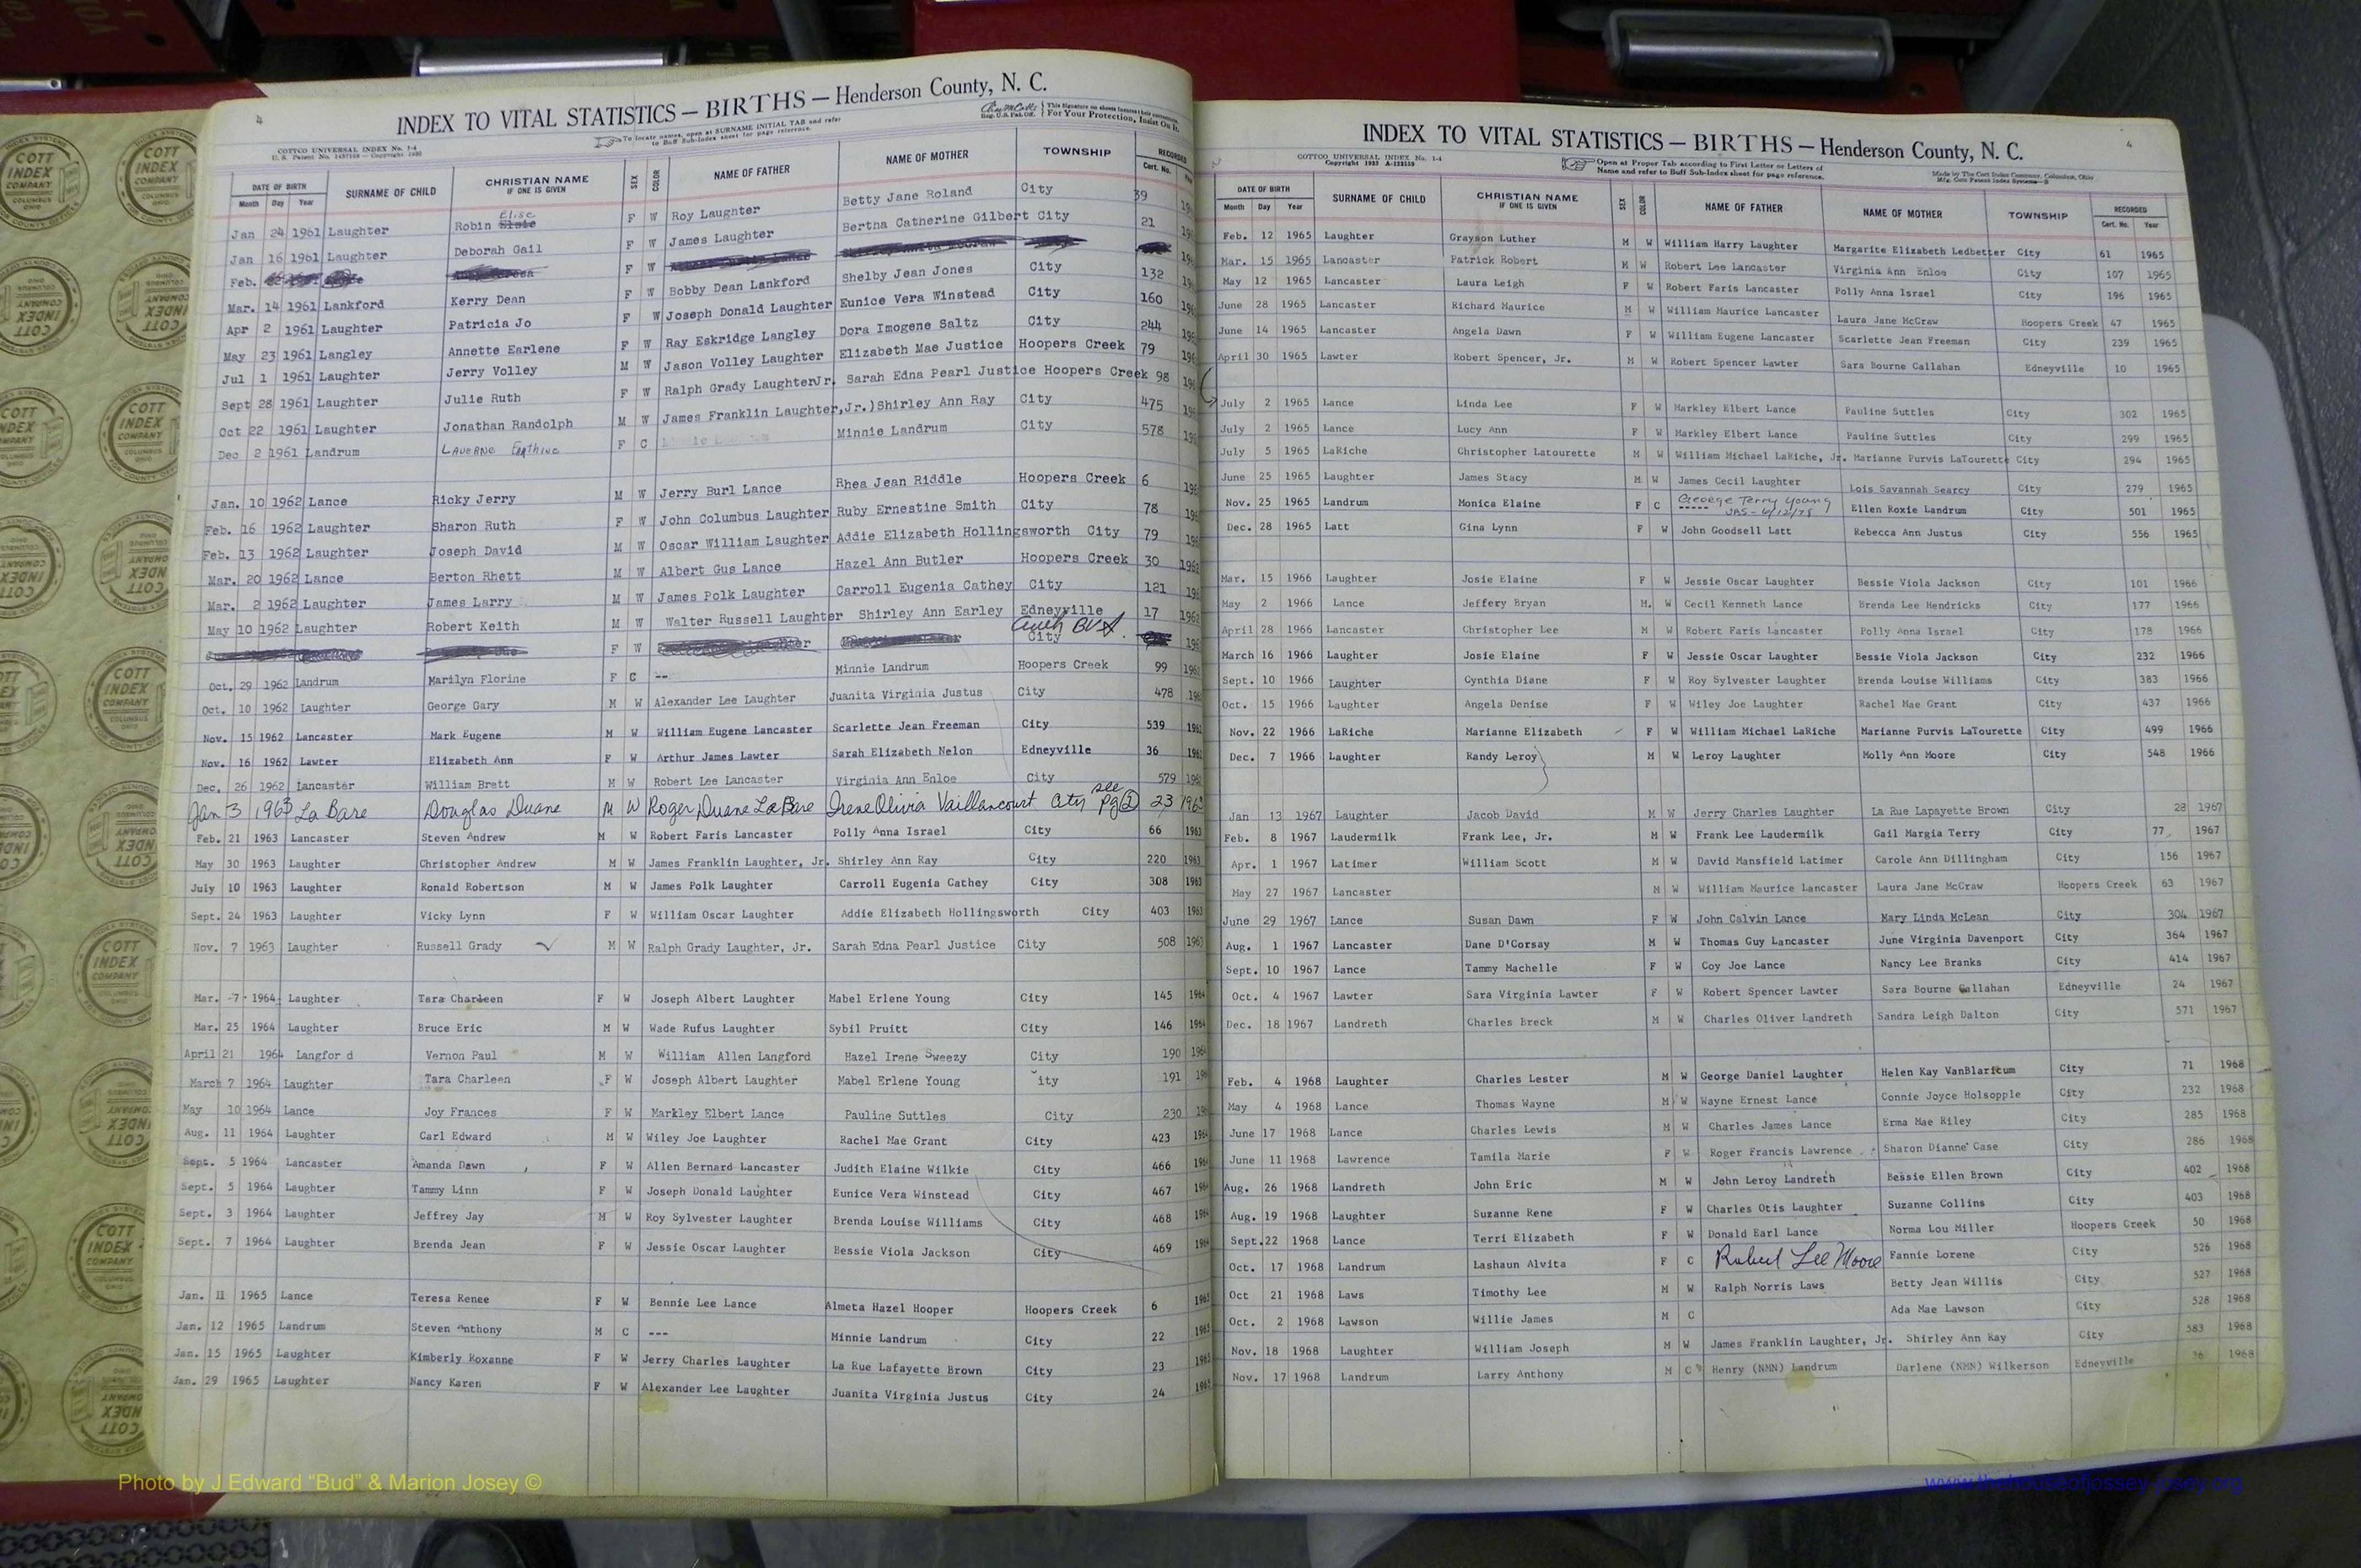 4
INDEX TO VITAL STATISTICS — BIRTHS — Henderson County, N. C.
COTTCO UNIVERSAL INDEX No. 1-4
To locate names, open at SURNAME INITIAL TAB and refer
to Buff Sub-Index sheet for page reference.
For Your Protection, Insist On It.
DATE OF BIRTH SURNAME OF CHILD CHRISTIAN NAME IF ONE IS GIVEN SEX COLOR NAME OF FATHER NAME OF MOTHER TOWNSHIP RECORDED
Month Day Year Cert. No.
Jan 24 1961 Laughter Robin Elsie Elise F W Roy Laughter Betty Jane Roland City 39
Jan 16 1961 Laughter Deborah Gail F W James Laughter Bertha Catherine Gilbert City 21
Feb. F W
Mar. 14 1961 Lankford Kerry Dean F W Bobby Dean Lankford Shelby Jean Jones City 132
Apr 2 1961 Laughter Patricia Jo F W Joseph Donald Laughter Eunice Vera Winstead City 160
May 23 1961 Langley Annette Earlene F W Ray Eskridge Langley Dora Imogene Saltz City 244
Jul 1 1961 Laughter Jerry Volley M W Jason Volley Laughter Elizabeth Mae Justice Hoopers Creek 79
Sept 28 1961 Laughter Julie Ruth F W Ralph Grady LaughterJr. Sarah Edna Pearl Justice Hoopers Creek 98
Oct 22 1961 Laughter Jonathan Randolph M W James Franklin Laughter,Jr.)Shirley Ann Ray City 475
Dec 2 1961 Landrum Laverne F C Minnie Landrum City 578
Jan. 10 1962 Lance Ricky Jerry M W Jerry Burl Lance Rhea Jean Riddle Hoopers Creek 6
Feb. 16 1962 Laughter Sharon Ruth F W John Columbus Laughter Ruby Ernestine Smith City 78
Feb. 13 1962 Laughter Joseph David M W Oscar William Laughter Addie Elizabeth Hollingsworth City 79
Mar. 20 1962 Lance Berton Rhett M W Albert Gus Lance Hazel Ann Butler Hoopers Creek 30 1962
Mar. 2 1962 Laughter James Larry M W James Polk Laughter Carroll Eugenia Cathey City 121
May 10 1962 Laughter Robert Keith M W Walter Russell Laughter Shirley Ann Earley Edneyville 17 1962
F W City
Oct. 29 1962 Landrum Marilyn Florine F C -- Minnie Landrum Hoopers Creek 99 1962
Oct. 10 1962 Laughter George Gary M W Alexander Lee Laughter Juanita Virginia Justus City 478
Nov. 15 1962 Lancaster Mark Eugene M W William Eugene Lancaster Scarlette Jean Freeman City 539
Nov. 16 1962 Lawter Elizabeth Ann F W Arthur James Lawter Sarah Elizabeth Nelon Edneyville 36
Dec. 26 1962 Lancaster William Brett M W Robert Lee Lancaster Virginia Ann Enloe City 579
Jan 3 1963 La Bare Douglas Duane M W Roger Duane LaBare Irene Olivia Vaillancourt City see pg 2 23 1963
Feb. 21 1963 Lancaster Steven Andrew M W Robert Faris Lancaster Polly Anna Israel City 66 1963
May 30 1963 Laughter Christopher Andrew M W James Franklin Laughter, Jr. Shirley Ann Ray City 220 1963
July 10 1963 Laughter Ronald Robertson M W James Polk Laughter Carroll Eugenia Cathey City 308 1963
Sept. 24 1963 Laughter Vicky Lynn F W William Oscar Laughter Addie Elizabeth Hollingsworth City 403 1963
Nov. 7 1963 Laughter Russell Grady M W Ralph Grady Laughter, Jr. Sarah Edna Pearl Justice City 508 1963
Mar. 7 1964 Laughter Tara Charleen F W Joseph Albert Laughter Mabel Erlene Young City 145 1964
Mar. 25 1964 Laughter Bruce Eric M W Wade Rufus Laughter Sybil Pruitt City 146 1964
April 21 1964 Langfor d Vernon Paul M W William Allen Langford Hazel Irene Sweezy City 190 1964
March 7 1964 Laughter Tara Charleen F W Joseph Albert Laughter Mabel Erlene Young ity 191
May 10 1964 Lance Joy Frances F W Markley Elbert Lance Pauline Suttles City 230
Aug. 11 1964 Laughter Carl Edward M W Wiley Joe Laughter Rachel Mae Grant City 423 1964
Sept. 5 1964 Lancaster Amanda Dawn F W Allen Bernard Lancaster Judith Elaine Wilkie City 466 1964
Sept. 5 1964 Laughter Tammy Linn F W Joseph Donald Laughter Eunice Vera Winstead City 467 1964
Sept. 3 1964 Laughter Jeffrey Jay M W Roy Sylvester Laughter Brenda Louise Williams City 468 1964
Sept. 7 1964 Laughter Brenda Jean F W Jessie Oscar Laughter Bessie Viola Jackson City 469 1964
Jan. 11 1965 Lance Teresa Renee F W Bennie Lee Lance Almeta Hazel Hooper Hoopers Creek 6 1965
Jan. 12 1965 Landrum Steven Anthony M C --- Minnie Landrum City 22 1965
Jan. 15 1965 Laughter Kimberly Roxanne F W Jerry Charles Laughter La Rue Lafayette Brown City 23 1965
Jan. 29 1965 Laughter Nancy Karen F W Alexander Lee Laughter Juanita Virginia Justus City 24 1965
4
INDEX TO VITAL STATISTICS — BIRTHS — Henderson County, N. C.
COTTCO UNIVERSAL INDEX No. 1-4
Open at Proper Tab according to First Letter or Letters of
Name and refer to Buff Sub-Index sheet for page reference.
Made by The Cott Index Company, Columbus, Ohio
DATE OF BIRTH SURNAME OF CHILD CHRISTIAN NAME IF ONE IS GIVEN SEX COLOR NAME OF FATHER NAME OF MOTHER TOWNSHIP RECORDED
Month Day Year Cert. No. Year
Feb. 12 1965 Laughter Grayson Luther M W William Harry Laughter Margarite Elizabeth Ledbetter City 61 1965
Mar. 15 1965 Lancaster Patrick Robert M W Robert Lee Lancaster Virginia Ann Enloe City 107 1965
May 12 1965 Lancaster Laura Leigh F W Robert Faris Lancaster Polly Anna Israel City 196 1965
June 28 1965 Lancaster Richard Maurice M W William Maurice Lancaster Laura Jane McGraw Hoopers Creek 47 1965
June 14 1965 Lancaster Angela Dawn F W William Eugene Lancaster Scarlette Jean Freeman City 239 1965
April 30 1965 Lawter Robert Spencer, Jr. M W Robert Spencer Lawter Sara Bourne Callahan Edneyville 10 1965
July 2 1965 Lance Linda Lee F W Markley Elbert Lance Pauline Suttles City 302 1965
July 2 1965 Lance Lucy Ann F W Markley Elbert Lance Pauline Suttles City 299 1965
July 5 1965 LaRiche Christopher Latourette M W William Michael LaRiche, Jr. Marianne Purvis LaTourette City 294 1965
June 25 1965 Laughter James Stacy M W James Cecil Laughter Lois Savannah Searcy City 279 1965
Nov. 25 1965 Landrum Monica Elaine F C ----- George Terry Young JAS - 6/12/78 Ellen Roxie Landrum City 501 1965
Dec. 28 1965 Latt Gina Lynn F W John Goodsell Latt Rebecca Ann Justus City 556 1965
Mar. 15 1966 Laughter Josie Elaine F W Jessie Oscar Laughter Bessie Viola Jackson City 101 1966
May 2 1966 Lance Jeffery Bryan M. W Cecil Kenneth Lance Brenda Lee Hendricks City 177 1966
April 28 1966 Lancaster Christopher Lee M W Robert Faris Lancaster Polly Anna Israel City 178 1966
March 16 1966 Laughter Josie Elaine F W Jessie Oscar Laughter Bessie Viola Jackson City 232 1966
Sept. 10 1966 Laughter Cynthia Diane F W Roy Sylvester Laughter Brenda Louise Williams City 383 1966
Oct. 15 1966 Laughter Angela Denise F W Wiley Joe Laughter Rachel Mae Grant City 437 1966
Nov. 22 1966 LaRiche Marianne Elizabeth F W William Michael LaRiche Marianne Purvis LaTourette City 499 1966
Dec. 7 1966 Laughter Randy Leroy M W Leroy Laughter Molly Ann Moore City 548 1966
Jan 13 1967 Laughter Jacob David M W Jerry Charles Laughter La Rue Lapayette Brown City 28 1967
Feb. 8 1967 Laudermilk Frank Lee, Jr. M W Frank Lee Laudermilk Gail Margia Terry City 77 1967
Apr. 1 1967 Latimer William Scott M W David Mansfield Latimer Carole Ann Dillingham City 156 1967
May 27 1967 Lancaster M W William Maurice Lancaster Laura Jane McCraw Hoopers Creek 63 1967
June 29 1967 Lance Susan Dawn F W John Calvin Lance Mary Linda McLean City 304 1967
Aug. 1 1967 Lancaster Dane D'Corsay M W Thomas Guy Lancaster June Virginia Davenport City 364 1967
Sept. 10 1967 Lance Tammy Machelle F W Coy Joe Lance Nancy Lee Branks City 414 1967
Oct. 4 1967 Lawter Sara Virginia Lawter F W Robert Spencer Lawter Sara Bourne Callahan Edneyville 24 1967
Dec. 18 1967 Landreth Charles Breck M W Charles Oliver Landreth Sandra Leigh Dalton City 571 1967
Feb. 4 1968 Laughter Charles Lester M W George Daniel Laughter Helen Kay VanBlaricum City 71 1968
May 4 1968 Lance Thomas Wayne M W Wayne Ernest Lance Connie Joyce Holsopple City 232 1968
June 17 1968 Lance Charles Lewis M W Charles James Lance Erma Mae Riley City 285 1968
June 11 1968 Lawrence Tamila Marie F W Roger Francis Lawrence Sharon Dianne Case City 286 1968
Aug. 26 1968 Landreth John Eric M W John Leroy Landreth Bessie Ellen Brown City 402 1968
Aug. 19 1968 Laughter Suzanne Rene F W Charles Otis Laughter Suzanne Collins City 403 1968
Sept. 22 1968 Lance Terri Elizabeth F W Donald Earl Lance Norma Lou Miller Hoopers Creek 50 1968
Oct. 17 1968 Landrum Lashaun Alvita F C Robert Lee Moore Fannie Lorene City 526 1968
Oct 21 1968 Laws Timothy Lee M W Ralph Norris Laws Betty Jean Willis City 527 1968
Oct. 2 1968 Lawson Willie James M C Ada Mae Lawson City 528 1968
Nov. 18 1968 Laughter William Joseph M W James Franklin Laughter, Jr. Shirley Ann Ray City 583 1968
Nov. 17 1968 Landrum Larry Anthony M C Henry (NMN) Landrum Darlene (NMN) Wilkerson Edneyville 36 1968
Photo by J Edward "Bud" & Marion Josey ©
www.thehouseofjossey-josey.org